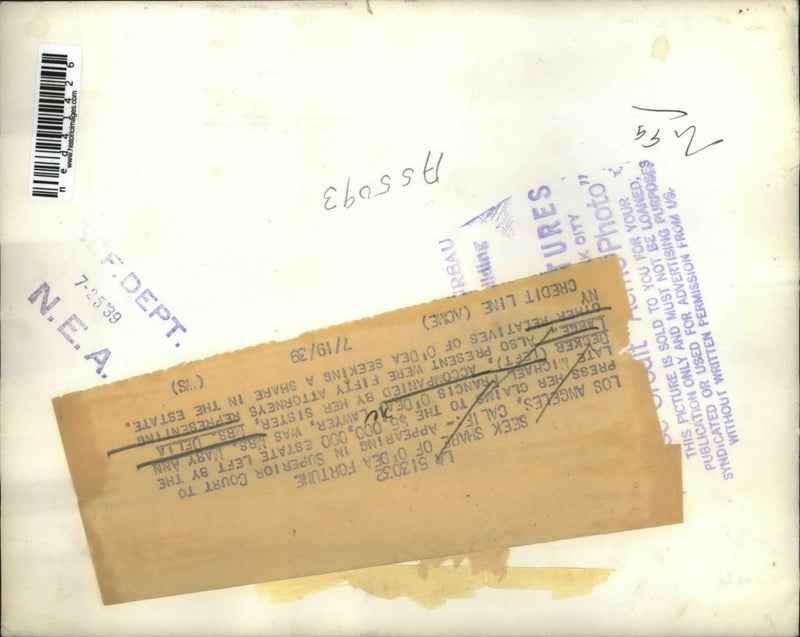 ned41426
www.historicimages.com
A55093
REF. DEPT.
7-25'39
N.E.A.
LA 513032
SEEK SHARE OF O'DEA FORTUNE
LOS ANGELES, CALIF.-- APPEARING IN SUPERIOR COURT TO
PRESS HER CLAIM TO THE $3,000,000 ESTATE LEFT BY THE
LATE MICHAEL FRANCIS O'DEA, LAWYER, WAS MRS. MARY ANN
DECKER (LEFT) ACCOMPANIED BY HER SISTER, MRS. DELLA
LARGE. ALSO PRESENT WERE FIFTY ATTORNEYS REPRESENTING
OTHER RELATIVES OF O'DEA SEEKING A SHARE IN THE ESTATE.
NY
CREDIT LINE (ACME) 7/19/39 (WS)
CITY
Photo"
THIS PICTURE IS SOLD TO YOU FOR YOUR
PUBLICATION ONLY AND MUST NOT BE LOANED,
SYNDICATED OR USED FOR ADVERTISING PURPOSES
WITHOUT WRITTEN PERMISSION FROM US.